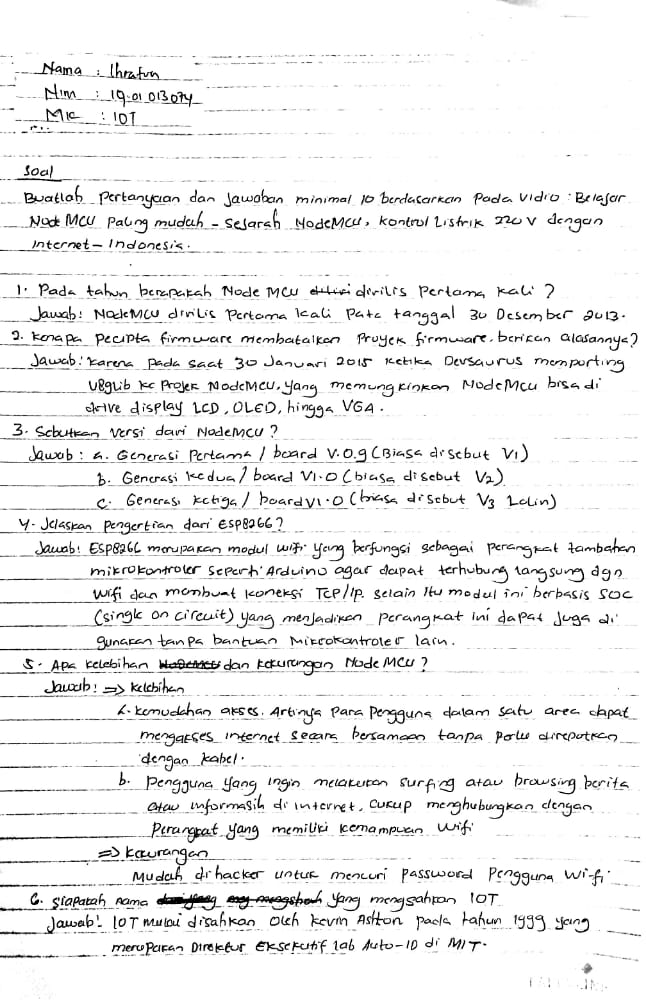 Nama : Ihratun
Nim : 19.01.013.074
MK : IOT
Soal
Buatlah Pertanyaan dan Jawaban minimal 10 berdasarkan Pada Vidio : Belajar
NodeMCU Paling mudah - Sejarah NodeMCU, Kontrol Listrik 220 V dengan
Internet - Indonesia.
1. Pada tahun berapakah Node MCU dirilis Pertama kali ?
Jawab : NodeMCU dirilis Pertama kali Pata tanggal 30 Desember 2013.
2. Kenapa Pecipta firmware membatalkan Proyek firmware, berikan alasannya?
Jawab : Karena pada saat 30 Januari 2015 ketika Devsaurus memporting
U8glib ke Projek NodeMCU, yang memungkinkan NodeMCU bisa di
drive display LCD, OLED, hingga VGA.
3. Sebutkan versi dari NodeMCU ?
Jawab : a. Generasi Pertama / board V.0.9 (Biasa disebut V1)
b. Generasi kedua / board V1.0 (biasa disebut V2)
c. Generasi ketiga / board V1.0 (biasa disebut V3 Lolin)
4. Jelaskan pengertian dari ESP8266 ?
Jawab : ESP8266 merupakan modul wifi yang berfungsi sebagai perangkat tambahan
mikrokontroler seperti Arduino agar dapat terhubung langsung dgn
wifi dan membuat koneksi TCP/Ip. selain itu modul ini berbasis SOC
(single on circuit) yang menjadikan perangkat ini dapat juga di
gunakan tanpa bantuan Mikrokontroler lain.
5. Apa kelebihan dan kekurangan Node MCU ?
Jawab : => Kelebihan
a. kemudahan akses. Artinya Para Pengguna dalam satu area dapat
mengakses internet secara bersamaan tanpa perlu direpotkan
dengan kabel.
b. Pengguna yang ingin melakukan surfing atau browsing berita
atau informasih di internet, cukup menghubungkan dengan
Perangkat yang memiliki kemampuan wifi
=> kekurangan
Mudah di hacker untuk mencuri password Pengguna Wi-fi
6. Siapakah nama yang mengsahkan IOT
Jawab : IOT mulai disahkan Oleh kevin Ashton pada tahun 1999 yang
merupakan Direktur Eksekutif lab Auto-ID di MIT.